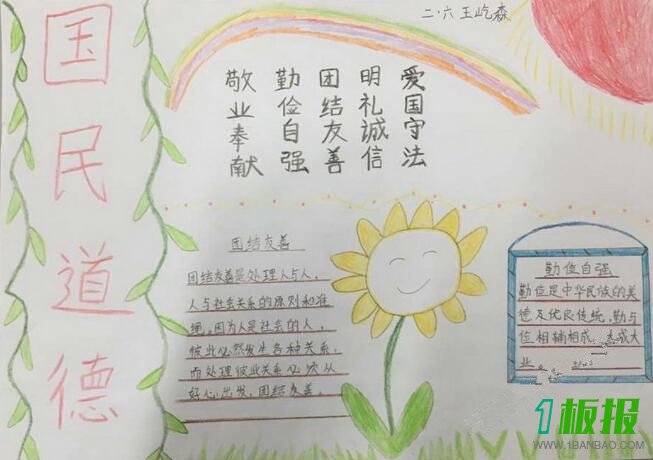 国民道德
二·六 王屹森
爱国守法
明礼诚信
团结友善
勤俭自强
敬业奉献
团结友善
团结友善是处理人与人,
人与社会关系的原则和准
绳,因为人是社会的人,
彼此必然发生各种关系,
而处理彼此关系必须从
好心出发,团结友善。
勤俭自强
勤俭是中华民族的美
德及优良传统,勤与
俭相辅相成 成大
业。
1板报
WWW.1BANBAO.COM